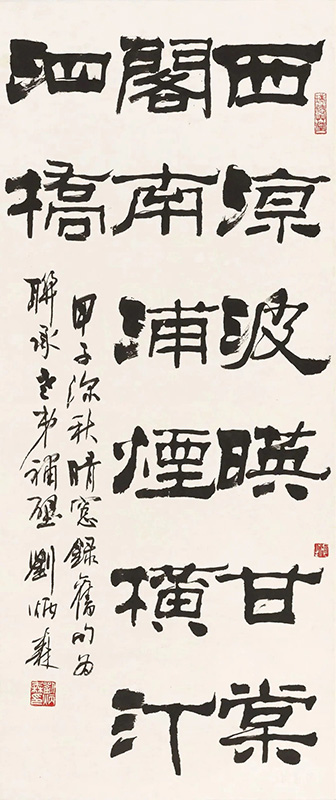 西涼波暎甘棠
閣南浦煙橫汀
泗橋
甲子深秋晴窓錄舊句為
聯承老弟補壁 劉炳森